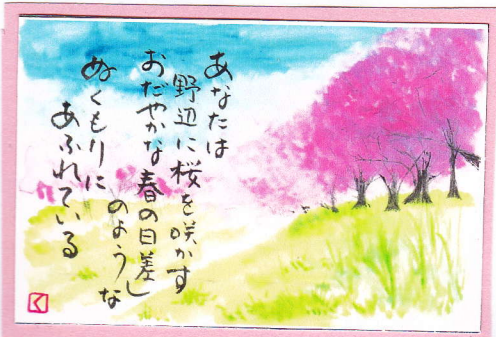 あなたは
野辺に桜を咲かす
おだやかな春の日差し
のような
ぬくもりに
あふれている
く